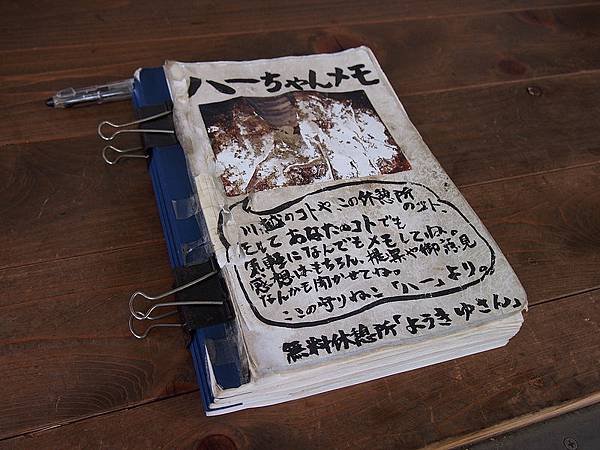 ハーちゃんメモ
川越のコトや、この休憩所のコト、
そして あなたのコトでも
気軽になんでもメモしてね。
感想はもちろん、提案や御意見
なんかも聞かせてね。
ここの守りねこ「ハー」より。
無料休憩所「ようきゆさん」